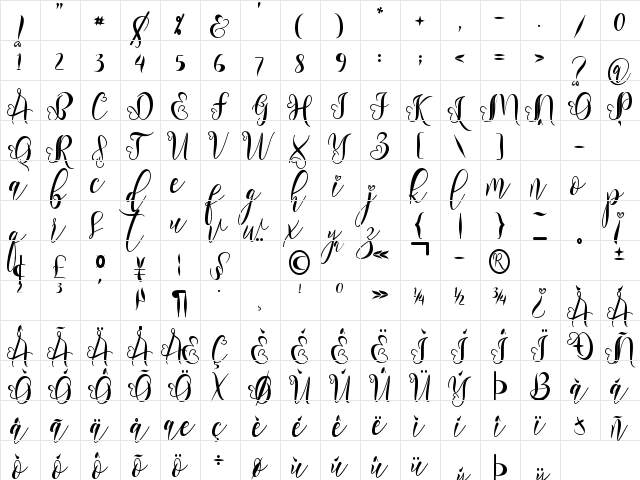 ! " # $ % & ' ( ) * + , - . / 0
1 2 3 4 5 6 7 8 9 : ; < = > ? @
A B C D E F G H I J K L M N O P
Q R S T U V W X Y Z [ \ ] -
a b c d e f g h i j k l m n o p
q r s t u v w x y z { | } ~ ¡
¢ £ ¤ ¥ ¦ § © « ¬ - ® ¯ ° ±
² ³ µ ¶ · ¸ ¹ º » ¼ ½ ¾ ¿ À Á
Â Ã Ä Å Æ Ç È É Ê Ë Ì Í Î Ï Ð Ñ
Ò Ó Ô Õ Ö × Ø Ù Ú Û Ü Ý Þ ß à á
â ã ä å æ ç è é ê ë ì í î ï ð ñ
ò ó ô õ ö ÷ ø ù ú û ü ý þ ÿ